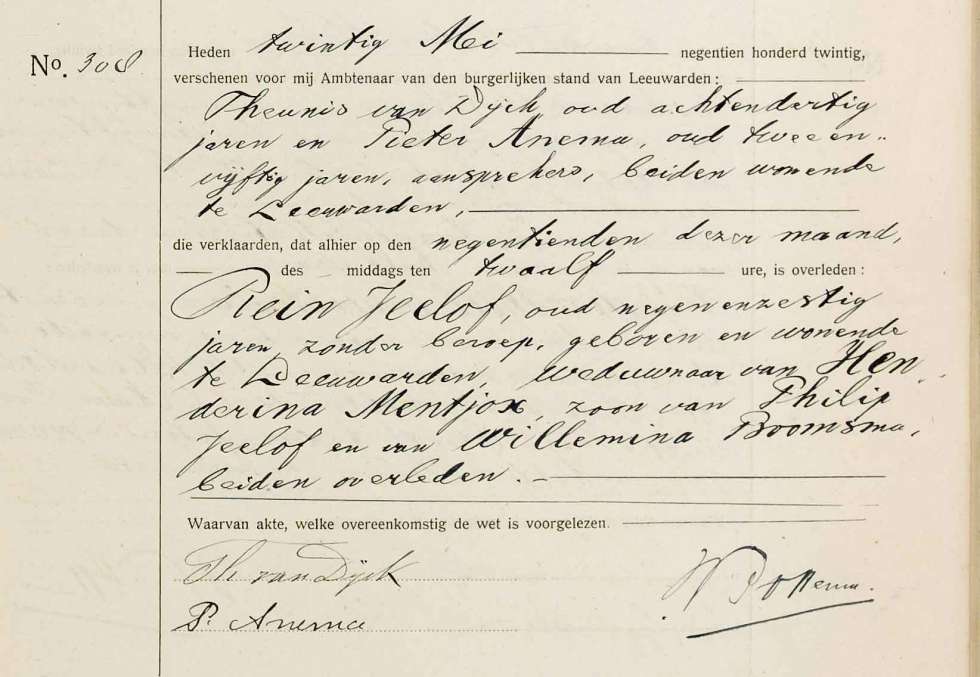 No. 308
Heden twintig Mei negentien honderd twintig,
verschenen voor mij Ambtenaar van den burgerlijken stand van Leeuwarden:
Theunis van Dijck, oud achtendertig
jaren en Pieter Anema, oud tweeen-
vijftig jaren, aansprekers, beiden wonende
te Leeuwarden,
die verklaarden, dat alhier op den negentienden dezer maand,
des middags ten twaalf ure, is overleden:
Rein Jeelof, oud negenenzestig
jaren, zonder beroep, geboren en wonende
te Leeuwarden, weduwnaar van Hen-
derina Mentjox, zoon van Philip
Jeelof en van Willemina Boomsma,
beiden overleden.
Waarvan akte, welke overeenkomstig de wet is voorgelezen.
Th van Dijck
P. Anema